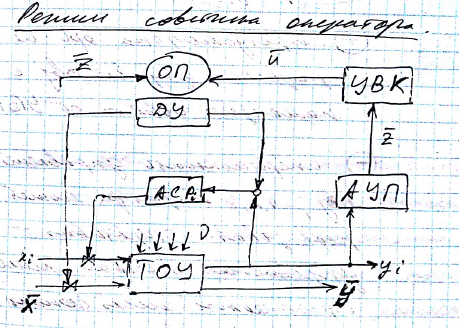 Режим советчика оператора.
Z̅ ОП u̅ УВК
ДУ
Z̅
АСР АУП
D
xi ТОУ yi
X̅ Y̅